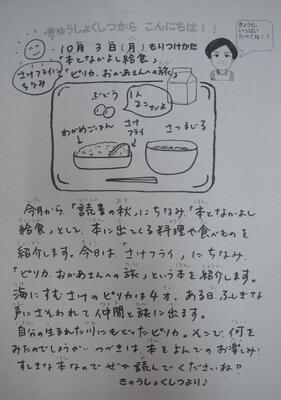 きゅうしょくしつから こんにちは!!
きょうも、
いっぱい
たべてね!!
10月 3日(月) もりつけかた
さけフライに
ちなみ
「本となかよし給食」
「ピリカ、おかあさんへの旅」
ぶどう
1人
2こずつよ
わかめごはん
さけ
フライ
さつまじる
今月から、「読書の秋」にちなみ、「本となかよし
給食」として、本に出てくる料理や食べものを
紹介します。今日は、「さけフライ」にちなみ、
「ピリカ、おかあさんへの旅」という本を紹介します。
海にすむさけのピリカは4才。ある日、ふしぎな
声にさそわれて仲間と旅に出ます。
自分の生まれた川にもどったピリカ。そこで、何を
みたのでしょうか。つづきは、本をよんでのお楽しみ!
すてきな本なので ぜひ 読んで くださいね。
きゅうしょくしつより♪